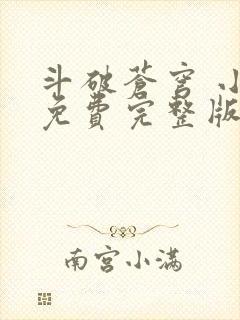 斗破苍穹 小
免費完整版
南宫小满